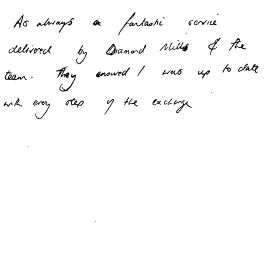 As always a fantastic service
delivered by Diamond Mills & the
team. They ensured I was up to date
with every step of the exchange